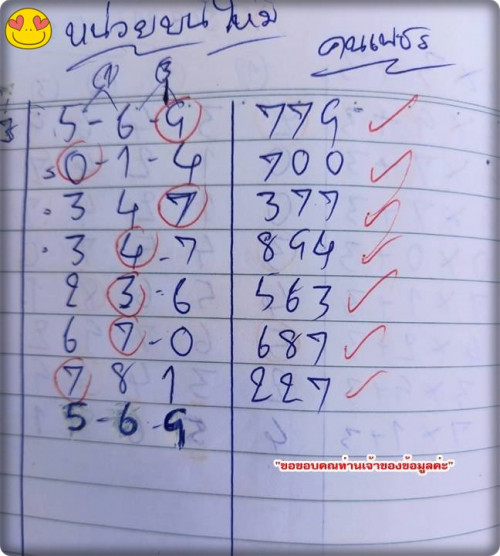 หน่วยบนใหม่
คนเพชร
5-6-9 779
0-1-4 700
3 4 7 377
3 4-7 894
2 3-6 563
6 7-0 687
7 8 1 227
5-6-9
"ขอขอบคุณท่านเจ้าของข้อมูลค่ะ"